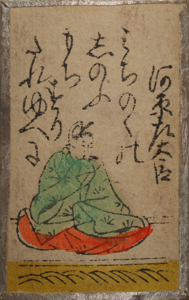 河原左大臣
みちのくの
志のふ
もち
すり
たれゆへに